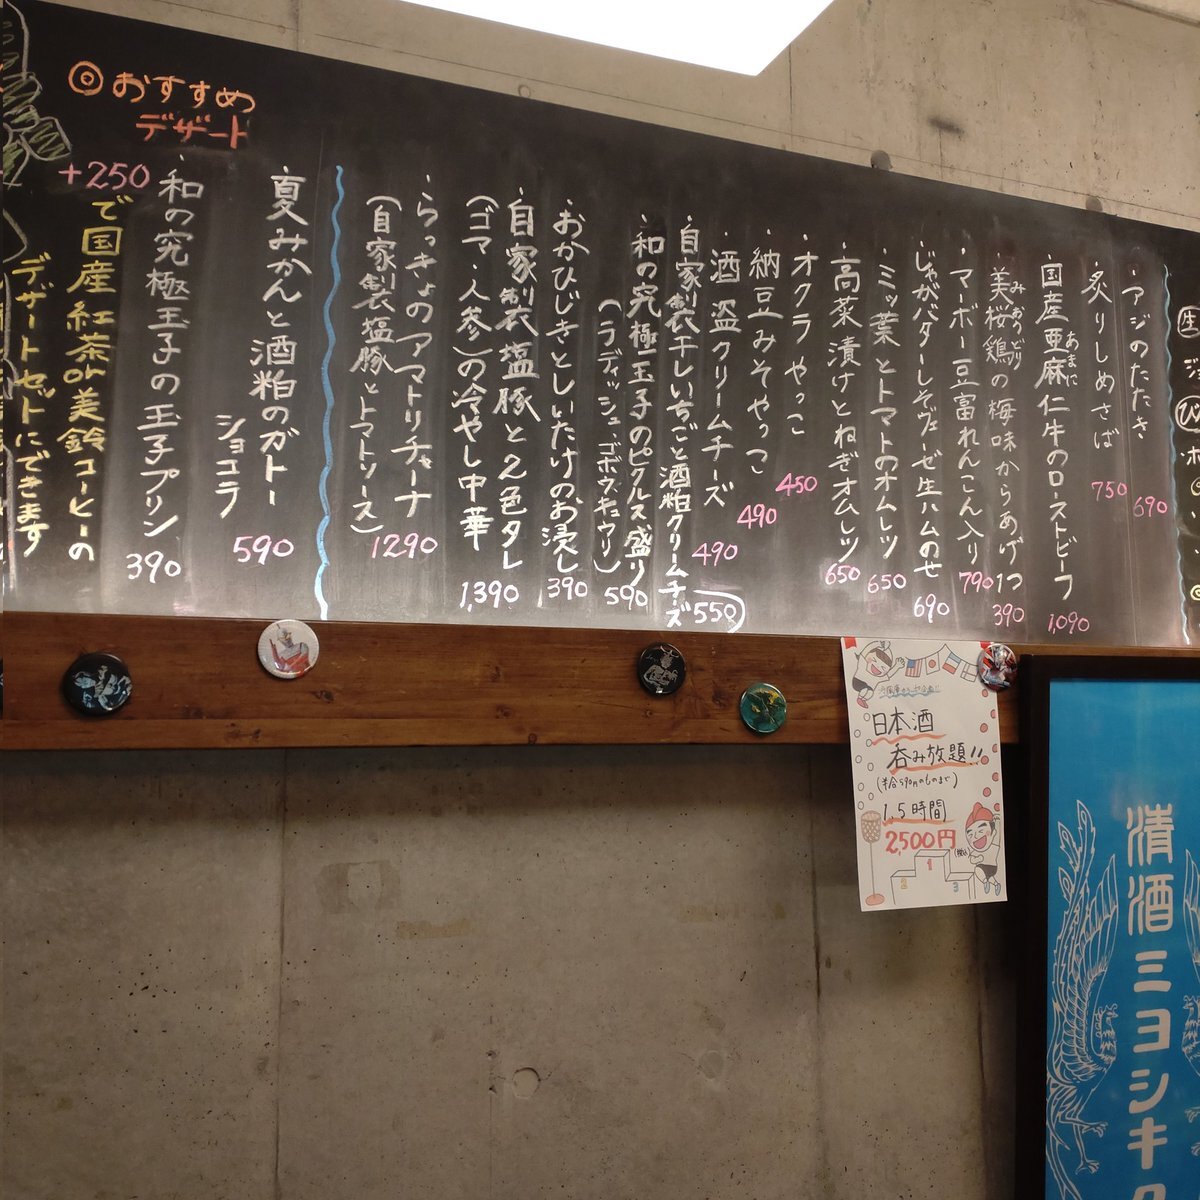 ・アジのたたき 690
・炙りしめさば 750
国産亜麻仁牛のローストビーフ 1,090
あまに
・美桜鶏の梅味からあげ1つ 390
みおうどり
・マーボー豆富れんこん入り 790
・じゃがバターしそヴェーゼ生ハムのせ 690
・ミツ葉とトマトのオムレツ 650
・高菜漬けとねぎオムレツ 650
・オクラやっこ 450
・納豆みそやっこ 490
・酒盗クリームチーズ 490
・自家製干しいちごと酒粕クリームチーズ 550
・和の究極玉子のピクルス盛り 590
(ラディッシュ、ゴボウ、キュウリ)
・おかひじきとしいたけのお浸し 390
・自家製塩豚と2色タレ
(ゴマ・人参)の冷やし中華 1,390
・らっきょのアマトリチャーナ 1290
(自家製塩豚とトマトソース)
◎おすすめ
デザート
・夏みかんと酒粕のガトー
ショコラ 590
・和の究極玉子の玉子プリン 390
+250
で国産紅茶or美鈴コーヒーの
デザートセットにできます
日本酒
呑み放題!!
(半合590円のものまで)
1.5時間
2,500円
(税込)
1
2
3
清酒ミヨシキク